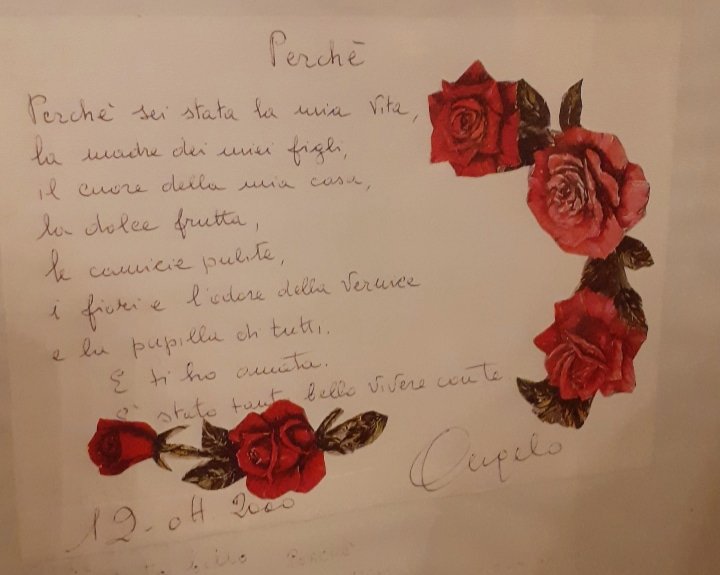 Perchè
Perchè sei stata la mia vita,
la madre dei miei figli,
il cuore della mia casa,
la dolce frutta,
le camicie pulite,
i fiori e l'odore della vernice
e la pupilla di tutti.
E ti ho amata.
E' stato tant bello vivere con te
Angelo
12 - ott. 2000